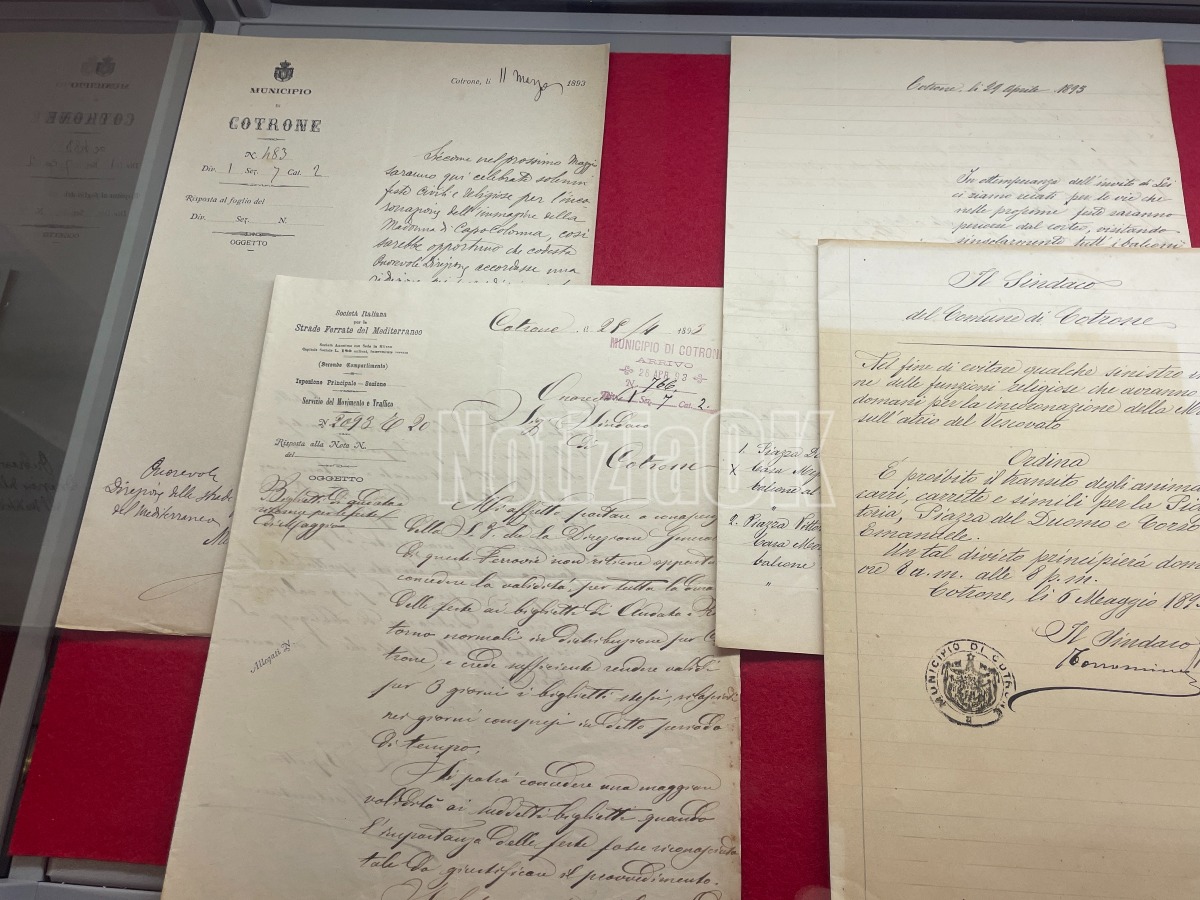 MUNICIPIO
DI
COTRONE
N. 483
Div. 1 Sez. 7 Cat. 2
Risposta al foglio del
Div. Sez. N.
OGGETTO
Cotrone, li 11 Marzo 1893
Siccome nel prossimo Maggio
saranno qui celebrate solenni
feste civili e religiose per l'inco
ronazione dell'immagine della
Madonna di Capocolonna, così
sarebbe opportuno che codesta
Onorevole Direzione accordasse una
Onorevole
Direzione delle Strade
del Mediterraneo
Società Italiana
per le
Strade Ferrate del Mediterraneo
Società Anonima con Sede in Milano
(Secondo Compartimento)
Ispezione Principale - Sezione
Servizio del Movimento e Traffico
N. 2093 20
Risposta alla Nota N.
del
OGGETTO
Biglietti di andata e
ritorno per le feste
Allegati N.
Cotrone li 28/4 1893
MUNICIPIO DI COTRONE
ARRIVO
28 APR 93
N. 766
1 Sez. 7 Cat. 2.
Onorev
Sig. Sindaco
di
Cotrone
Mi affretto portare a conoscenza
della S. V. che la Direzione Generale
di queste Ferrovie non ritiene opportuno
concedere la validità, per tutta la durata
delle feste ai biglietti di Andata e Ri
torno normali in distribuzione per Co
trone, e crede sufficiente rendere validi
per 3 giorni i biglietti stessi, rilasciati
nei giorni compresi in detto periodo
di tempo.
Si potrà concedere una maggiore
validità ai suddetti biglietti quando
l'importanza delle feste fosse riconosciuta
tale da giustificare il provvedimento.
Cotrone, li 29 Aprile 1893
In ottemperanza dell'invito di Lei
ci siamo recati per le vie che
nelle prossime feste saranno
percorse dal corteo, visitando
singolarmente tutt'i balconi
1. Piazza
X Casa
balcone al
"
2. Piazza Vitto
Casa
balcone
"
Il Sindaco
del Comune di Cotrone
Nel fine di evitare qualche sinistro
ne delle funzioni religiose che avranno
domani per la incoronazione della
sull'atrio del Vescovato
Ordina
È proibito il transito degli anima
carri, carrette e simili per la
toria, Piazza del Duomo e Corso
Emanuele.
Un tal divieto principierà dom
ore 8 a.m. alle 8 p.m.
Cotrone, li 6 Maggio 189
Il Sindaco
MUNICIPIO DI COTRONE
NotiziaOK